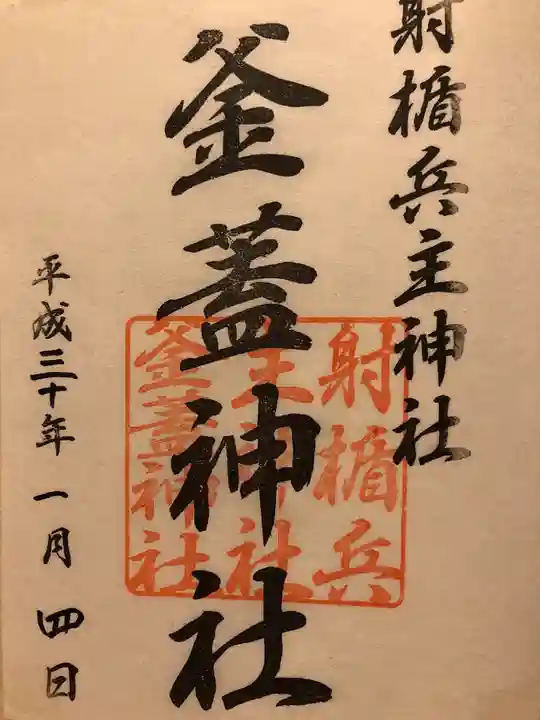 射楯兵主神社
釜蓋神社
平成三十年一月四日
射楯兵
主神社
釜蓋神社